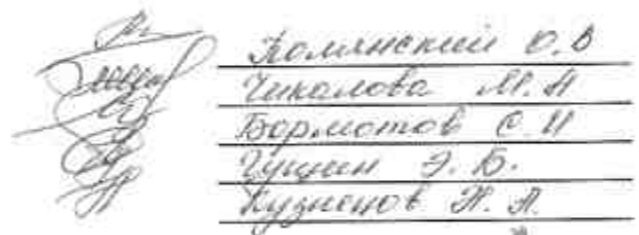 Полянский О.В
Чикалова М.Н
Бормотов С.И
Гущин Э.Б.
Кузнецов Н.А.